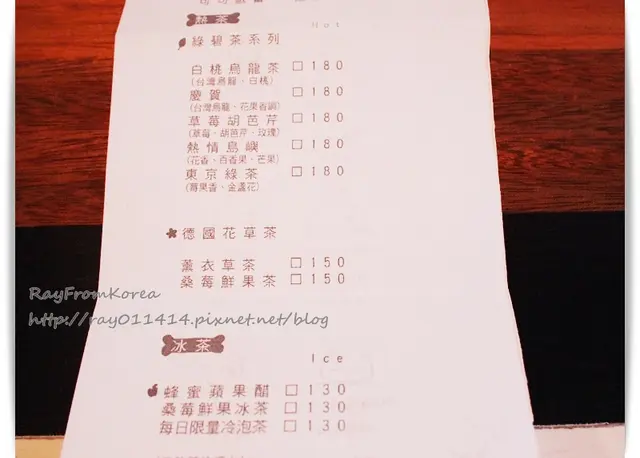 熱茶
Hot
綠碧茶系列
白桃烏龍茶 □180
(台灣烏龍、白桃)
慶賀 □180
(台灣烏龍、花果香調)
草莓胡芭芹 □180
(草莓、胡芭芹、玫瑰)
熱情島嶼 □180
(花香、百香果、芒果)
東京綠茶 □180
(莓果香、金盞花)
德國花草茶
薰衣草茶 □150
桑莓鮮果茶 □150
RayFromKorea
http://ray011414.pixnet.net/blog
冰茶
Ice
蜂蜜蘋果醋 □130
桑莓鮮果冰茶 □130
每日限量冷泡茶 □130